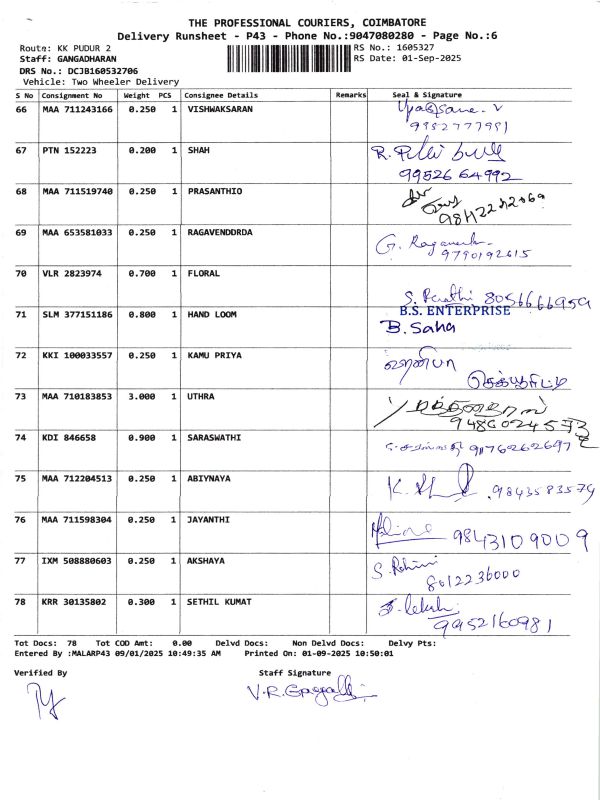 THE PROFESSIONAL COURIERS, COIMBATORE
Delivery Runsheet - P43 - Phone No.:9047080280 - Page No.:6
Route: KK PUDUR 2 RS No.: 1605327
Staff: GANGADHARAN RS Date: 01-Sep-2025
DRS No.: DCJB160532706
Vehicle: Two Wheeler Delivery
S No Consignment No Weight PCS Consignee Details Remarks Seal & Signature
66 MAA 711243166 0.250 1 VISHWAKSARAN
67 PTN 152223 0.200 1 SHAH
9952664992
68 MAA 711519740 0.250 1 PRASANTHIO
69 MAA 653581033 0.250 1 RAGAVENDDRDA G.
9790192615
70 VLR 2823974 0.700 1 FLORAL S. 8056666959
71 SLM 377151186 0.800 1 HAND LOOM B.S. ENTERPRISE
B. Saha
72 KKI 100033557 0.250 1 KAMU PRIYA
73 MAA 710183853 3.000 1 UTHRA
74 KDI 846658 0.900 1 SARASWATHI 9176262697
75 MAA 712204513 0.250 1 ABIYNAYA K. 9843583579
76 MAA 711598304 0.250 1 JAYANTHI 9843109009
77 IXM 508880603 0.250 1 AKSHAYA S. Rohini
8012236000
78 KRR 30135802 0.300 1 SETHIL KUMAT
9952160981
Tot Docs: 78 Tot COD Amt: 0.00 Delvd Docs: Non Delvd Docs: Delvy Pts:
Entered By :MALARP43 09/01/2025 10:49:35 AM Printed On: 01-09-2025 10:50:01
Verified By Staff Signature